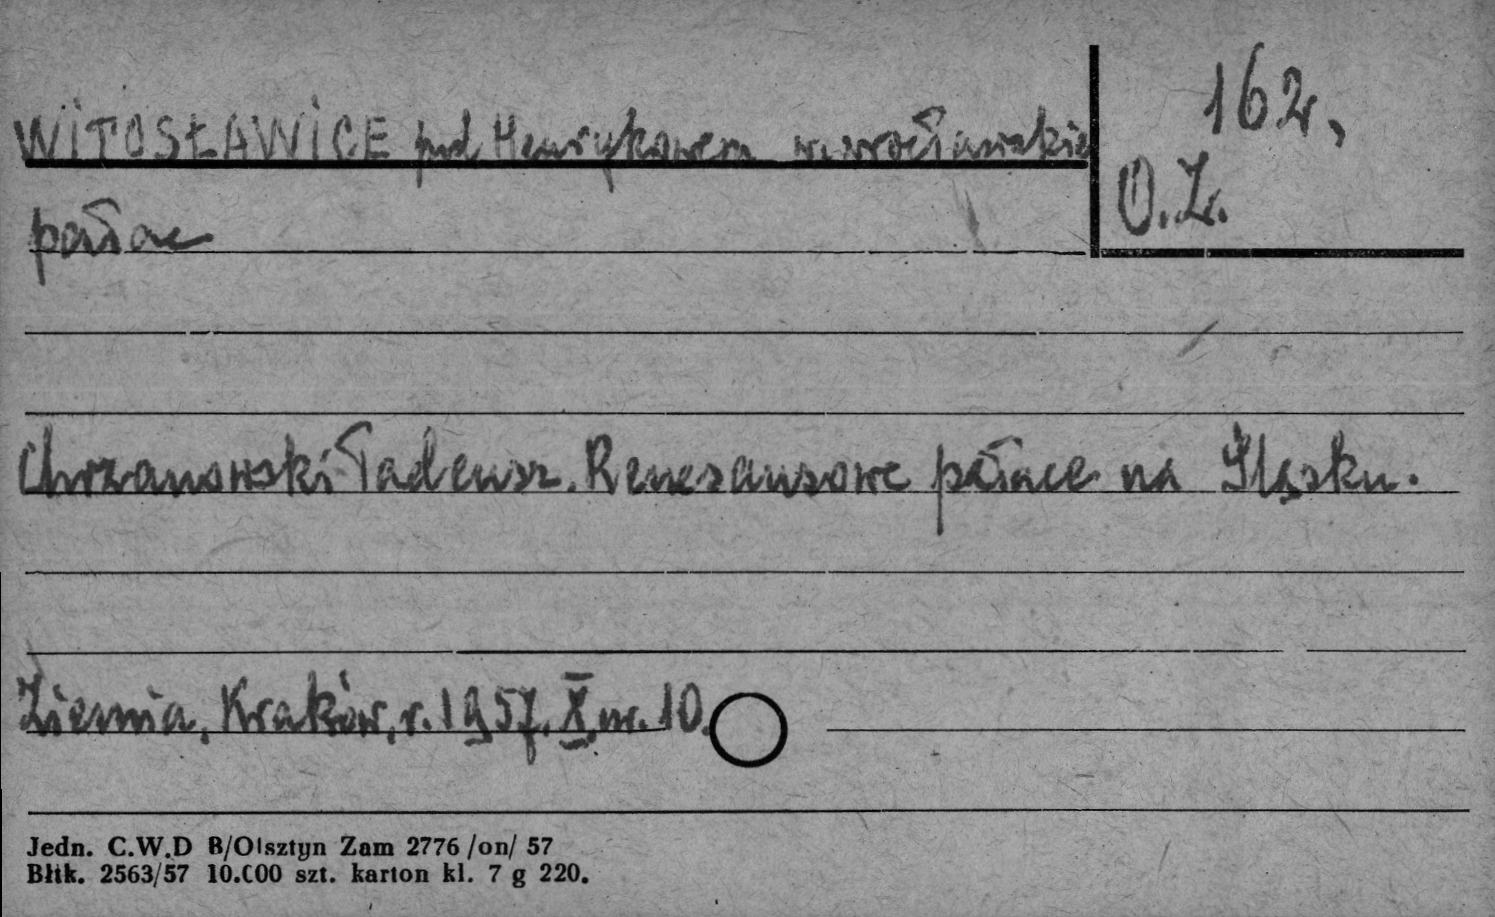 WITOSŁAWICE pod Henrykowem w. wrocławskie
162,
O.Z.
pałac
Chrzanowski Tadeusz. Renesansowe pałace na Śląsku.
Ziemia, Kraków, r. 1957. X. nr. 10.
Jedn. C.W.D B/Olsztyn Zam 2776 /on/ 57
Błtk. 2563/57 10.000 szt. karton kl. 7 g 220.